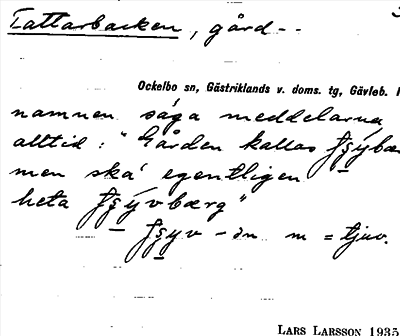 Tattarbacken, gård--
Ockelbo sn, Gästriklands v. doms. tg, Gävleb.
namnen säga meddelarna
alltid: "Gården kallas
men ska' egentligen
heta fşývbærg"
fşyv -ən m = tjuv.
LARS LARSSON 1935